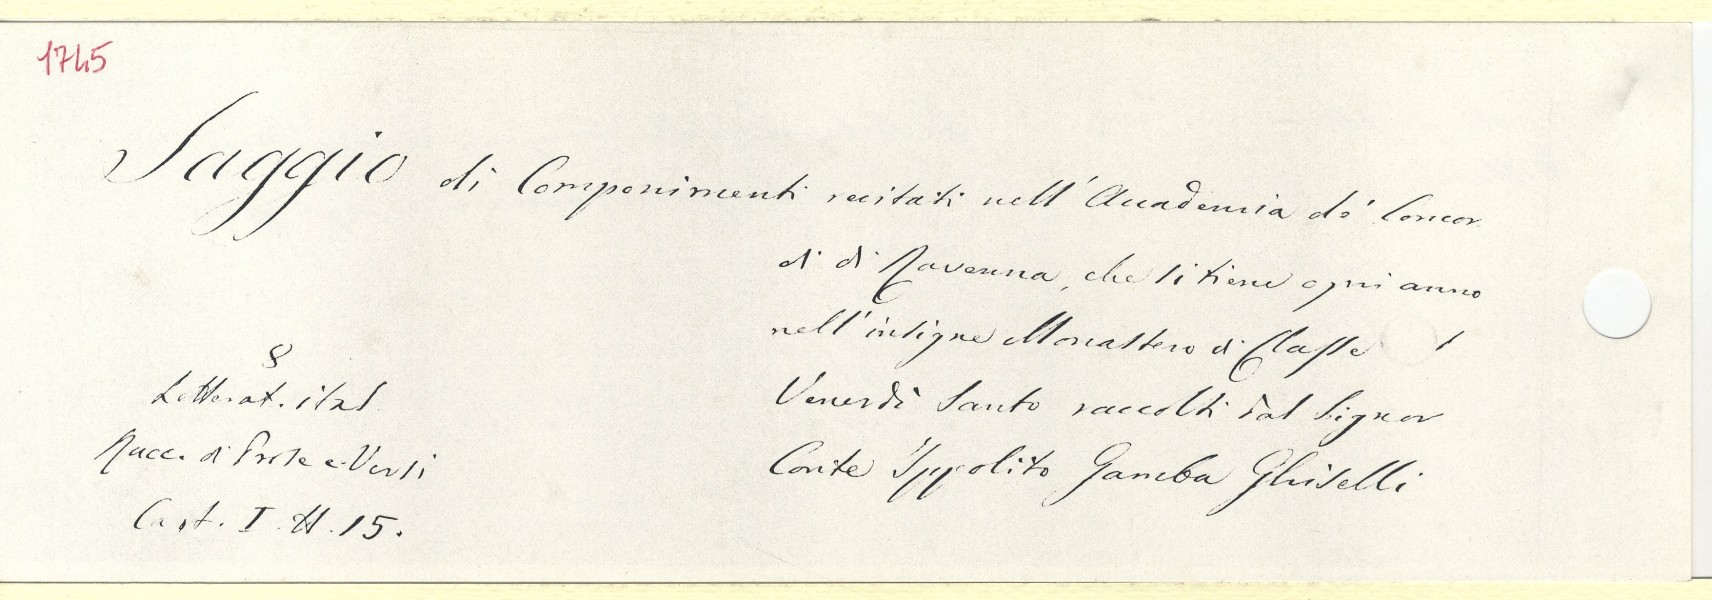 1745
Saggio di Componimenti recitati nell' Accademia de' Concor
di di Ravenna, che si tiene ogni anno
nell'insigne Monastero di Classe
Venerdì Santo raccolti dal Signor
Conte Ippolito Gamba Ghiselli
§
Letterat. ital.
Racc. di Prose e Versi
Cart. I. H. 15.